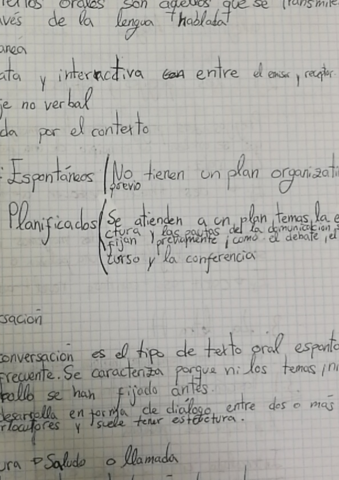 orales son aquellos que se transmite
avés de la lengua hablada
anea
ata y interactiva entre el emisor y receptor
je no verbal
da por el contexto
Espontáneos No tienen un plan organizati
previo
Planificados Se atienden a un plan, temas, la e
ctura y las pautas del la comunicación, s
fijan previamente, como el debate, el
curso y la conferencia
sación
conversación es el tipo de texto oral esponta
frecuente. Se caracteriza porque ni los temas, ni
ollo se han fijado antes
desarrolla en forma de diálogo entre dos o más
rlocutores y suele tener estructura.
ura Saludo o llamada